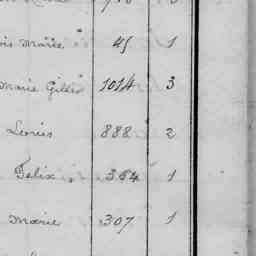 Marie " 45 1
Marie Gilles 1014 3
Louis 888 2
Felix, 364 1
Marie 307 1